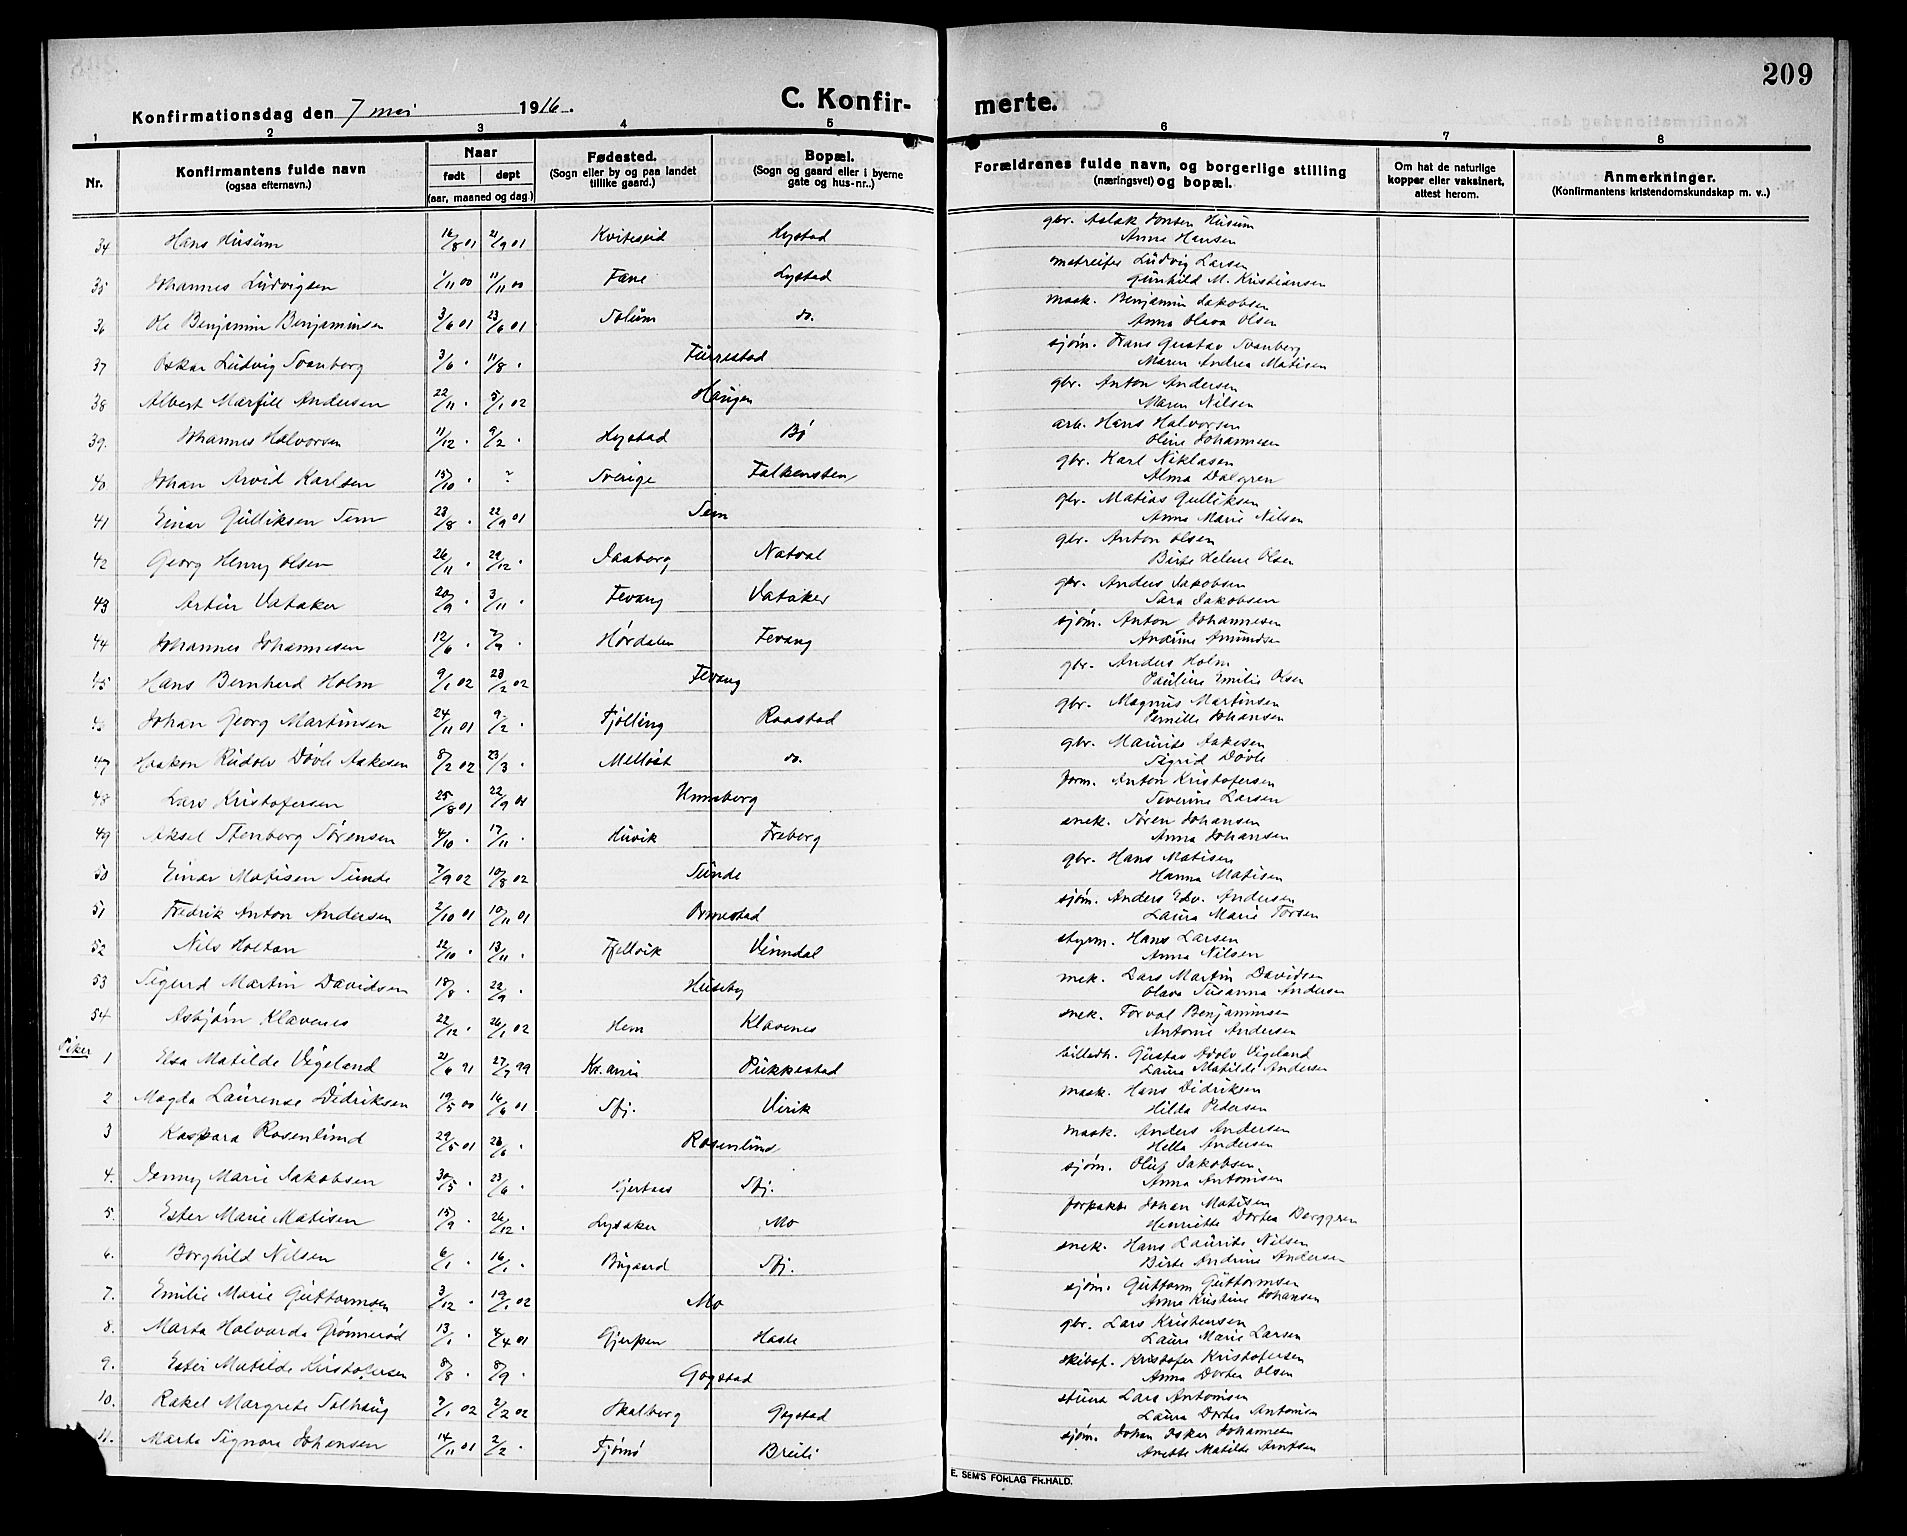 209
Konfirmationsdag den 7 mai 1916.
C. Konfirmerte.
1 2 3 4 5 6 7 8
Nr.
Konfirmantens fulde navn
(ogsaa efternavn.)
Naar
født døpt
(aar, maaned og dag.)
Fødested.
(Sogn eller by og paa landet
tillike gaard.)
Bopæl.
(Sogn og gaard eller i byerne
gate og hus-nr..)
Forældrenes fulde navn, og borgerlige stilling
(næringsvei) og bopæl.
Om hat de naturlige
kopper eller vaksinert,
attest herom.
Anmerkninger.
(Konfirmantens kristendomskundskap m. v..)
34 Hans Husum 16/8 01 21/9 01 Kviteseid Lystad gbr. Aslak Jonsen Husum
Anne Hansen
35 Johannes Ludvigsen 1/11 00 11/11 00 Tane Lystad Ludvig Larsen
Gunhild M. Kristiansen
36 Ole Benjamin Benjaminsen 3/6 01 23/6 01 Solum do. mask. Benjamin Jakobsen
Anna Olava Olsen
37 Oskar Ludvig Svanberg 3/6 . 11/8 . Furrestad sjøm. Frans Gustav Svanberg
Maren Andrea Matisen
38 Albert Marfill Andersen 22/11 . 5/1 02 Haugen gbr. Anton Andersen
Maren Nilsen
39. Johannes Halvorsen 11/12 . 9/2 . Lystad Bø arb. Hans Halvorsen
Oline Johannesen
40 Johan Arvid Karlsen 15/10 . ? Sverige Falkensten gbr. Karl Niklasen
Alma Dalgren
41 Einar Gulliksen Sem 23/8 . 22/9 01 Sem gbr. Matias Gulliksen
Anne Marie Nilsen
42 Georg Henry Olsen 26/11 . 29/12 . Daaborg Natval gbr. Anton Olsen
Birte Helene Olsen
43 Artur Vataker 20/9 . 3/11 . Fevang Vataker gbr. Anders Jakobsen
Sara Jakobsen
44 Johannes Johannesen 12/6 . 7/9 . Hørdalen Fevang sjøm. Anton Johannesen
Andrine Amundsen
45 Hans Bernhard Holm 9/1 02 23/2 02 Fevang gbr. Anders Holm
Pauline Emilie Olsen
46 Johan Georg Martinsen 24/11 01 9/2 . Fjølling Raastad gbr. Magnus Martinsen
Pernille Johansen
47 Haakon Rudolv Døvle Aakesen 8/2 02 23/3 . Melløst do. gbr. Maurits Aakesen
Sigrid Døvle
48 Lars Kristofersen 25/8 01 22/9 01 Unneberg form. Anton Kristofersen
Severine Larsen
49 Aksel Stenberg Sørensen 4/10 . 17/11 . Huvik Freberg snek. Søren Johansen
Anna Johansen
50 Einar Matisen Sunde 7/9 02 10/8 02 Sunde gbr. Hans Matisen
Hanna Matisen
51 Fredrik Anton Andersen 2/10 01 10/11 01 Ormestad sjøm. Anders Edv. Andersen
Laura Marie Torsen
52 Nils Holtan 22/10 . 13/11 . Fjellvik Vinndal styrm. Hans Larsen
Anna Nilsen
53 Sigurd Martin Davidsen 18/8 . 22/9 . Huseby mek. Lars Martin Davidsen
Olava Susanna Andersen
54 Asbjørn Klavenes 22/12 . 26/1 02 Hem Klavenes snek. Torval Benjaminsen
Antonie Andersen
Piker
1 Elsa Matilde Vigeland 21/6 91 27/7 99 Kr.ania Pukkestad billedh. Gustav Adolv Vigeland
Laura Matilde Andersen
2 Magda Laurense Didriksen 19/5 00 16/6 01 Sfj. Virik mask. Hans Didriksen
Hilda Pedersen
3 Kaspara Rosenlund 29/5 01 23/6 . Rosenlund mask. Anders Andersen
Hella Andersen
4. Jenny Marie Jakobsen 30/5 . 23/6 . Gjertaas Sfj. sjøm. Oluf Jakobsen
Anna Antonisen
5. Ester Marie Matisen 15/9 . 26/12 . Lysaker Mo forpakte Johan Matisen
Henriette Dortea Berggren
6. Borghild Nilsen 6/1 . 16/1 . Bugaard Sfj. snek. Hans Laurits Nilsen
Birte Andrine Andersen
7. Emilie Marie Guttormsen 3/12 . 19/1 02 Mo sjøm. Guttorm Guttormsen
Anne Kristine Johansen
8. Marta Halvarda Grønnerød 13/1 . 4/4 01 Gjerpen Hasle gbr. Lars Kristensen
Laura Marie Larsen
9. Ester Matilde Kristofersen 8/8 . 8/9 . Gogstad skibsf. Kristofer Kristofersen
Anna Dortea Olsen
10. Rakel Margrete Solhaug 9/1 02 2/2 02 Skalberg Gogstad stuua Lars Antonisen
Laura Dortea Antonisen
11. Marta Signora Johansen 14/11 01 2/2 . Tjømø Breili sjøm. Johan Oskar Johannesen
Anette Matilde Arntsen
E. SEM'S FORLAG FR.HALD.